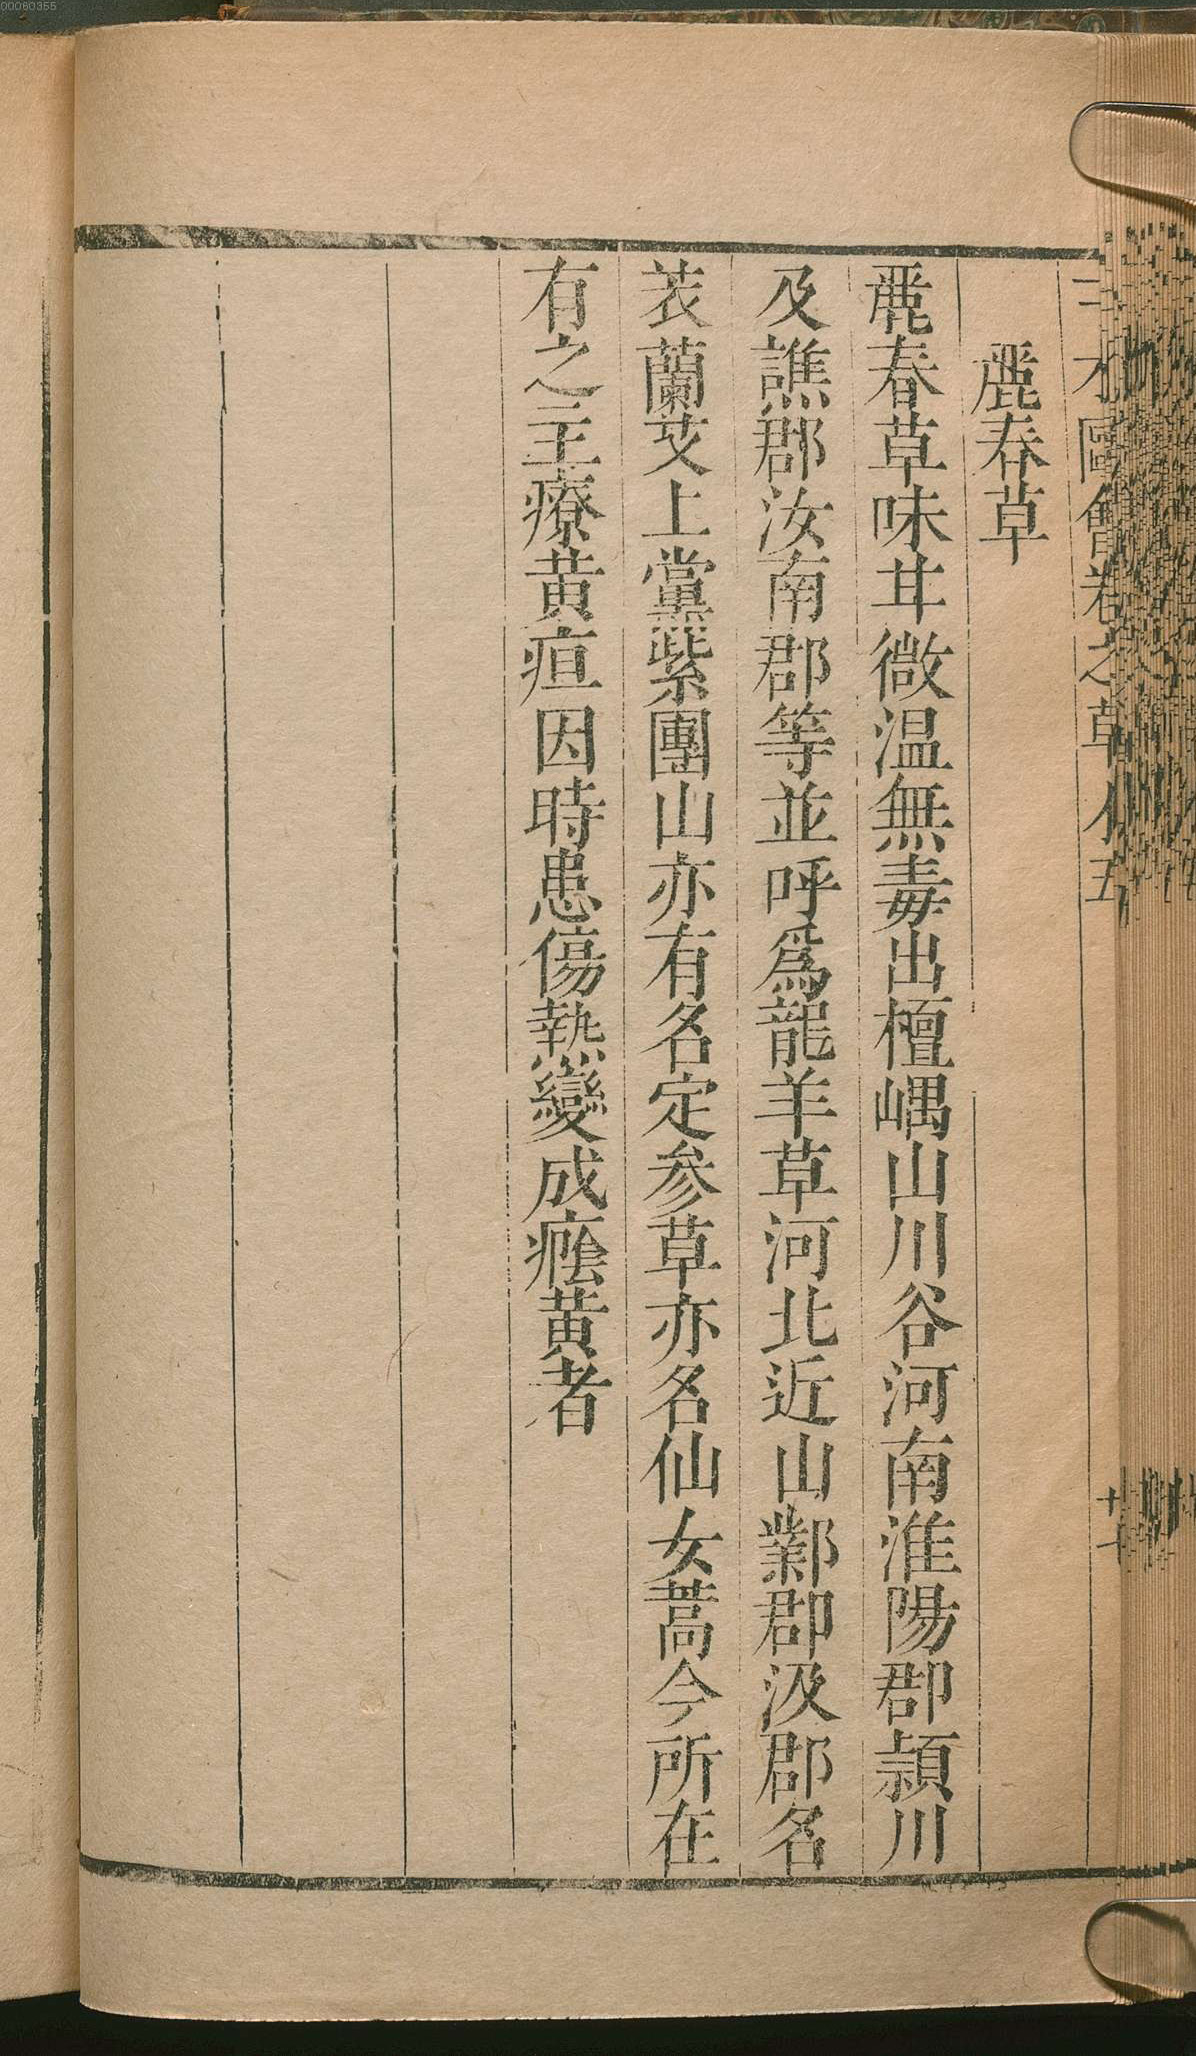 00060355
三才圖會卷之草木五
十一
麗春草
麗春草味甘微温無毒出檀嵎山川谷河南淮陽郡頴川
及譙郡汝南郡等並呼爲龍羊草河北近山鄴郡汲郡名
䒾蘭艾上黨紫團山亦有名定参草亦名仙女蒿今所在
有之主療黄疸因時患傷熱變成癊黄者